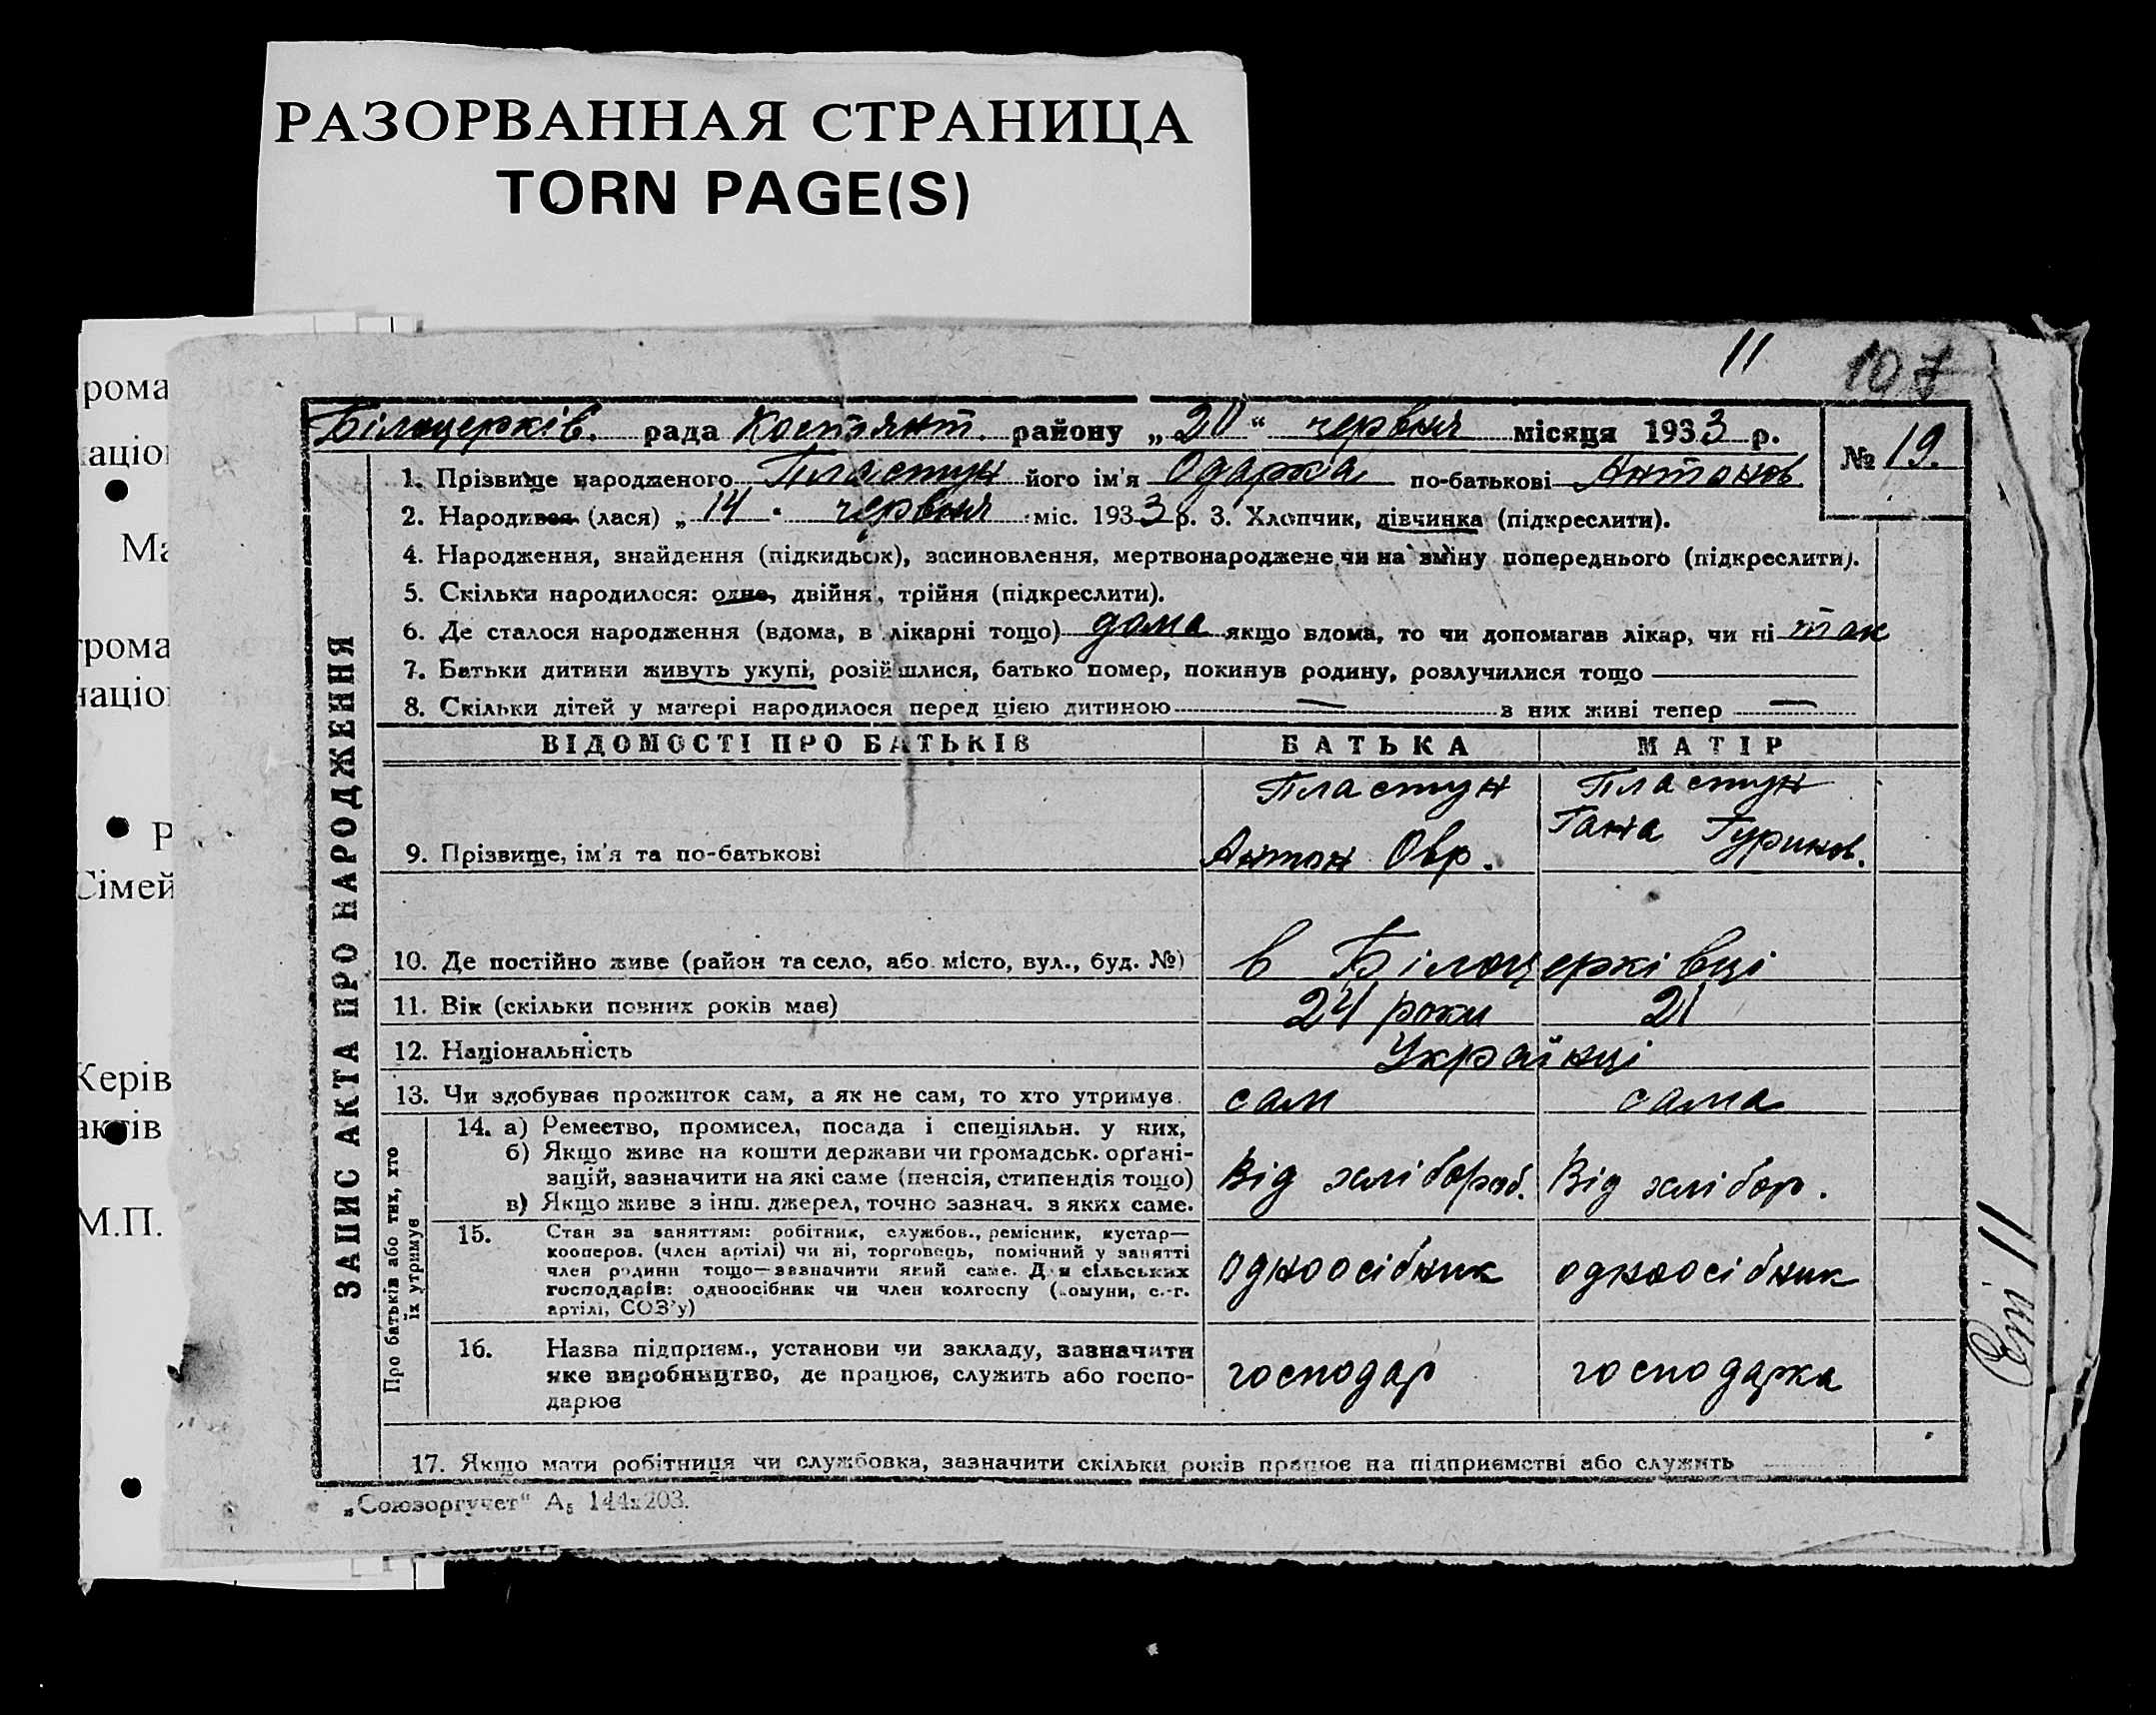 РАЗОРВАННАЯ СТРАНИЦА
TORN PAGE(S)
11
107
Білоцерків. рада Костянт. району „20“ червня місяця 1933 р.
№ 19.
1. Прізвище народженого Пластун його ім'я Одарка по-батькові Антонов
2. Народився (лася) „14 " червня міс. 1933 р. 3. Хлопчик, дівчинка (підкреслити).
4. Народження, знайдення (підкидьок), засиновлення, мертвонароджене чи на зміну попереднього (підкреслити).
5. Скільки народилося: одно, двійня, трійня (підкреслити).
6. Де сталося народження (вдома, в лікарні тощо) дома якщо вдома, то чи допомагав лікар, чи ні так
7. Батьки дитини живуть укупі, розійшлися, батько помер, покинув родину, розлучилися тощо
8. Скільки дітей у матері народилося перед цією дитиною — з них живі тепер —
ВІДОМОСТІ ПРО БАТЬКІВ БАТЬКА МАТІР
9. Прізвище, ім'я та по-батькові
Пластун
Антон Овр.
Пластун
Ганна Гуринов.
10. Де постійно живе (район та село, або місто, вул., буд. №) в Білоцерківці
11. Вік (скільки повних років має) 24 роки 21
12. Національність Українці
13. Чи здобуває прожиток сам, а як не сам, то хто утримує сам сама
14. а) Ремество, промисел, посада і спеціяльн. у них,
б) Якщо живе на кошти держави чи громадськ. органі-
зацій, зазначити на які саме (пенсія, стипендія тощо)
в) Якщо живе з інш. джерел, точно зазнач. з яких саме.
Від хлібороб. Від хлібор.
15. Стан за заняттям: робітник, службов., ремісник, кустар—
кооперов. (член артілі) чи ні, торговець, помічний у занятті
член родини тощо—зазначити який саме. Для сільських
господарів: одноосібник чи член колгоспу (комуни, с.-г.
артілі, СОЗ'у)
одноосібник одноосібник
16. Назва підприєм., установи чи закладу, зазначити
яке виробництво, де працює, служить або госпо-
дарює
господар господарка
17. Якщо мати робітниця чи службовка, зазначити скільки років працює на підприємстві або служить
„Союзоргучет“ А5 144х203.
ЗАПИС АКТА ПРО НАРОДЖЕННЯ
Про батьків або тих, хто
їх утримує
рома
аціо
Ма
рома
націо
Р
Сімей
Керів
актів
М.П.